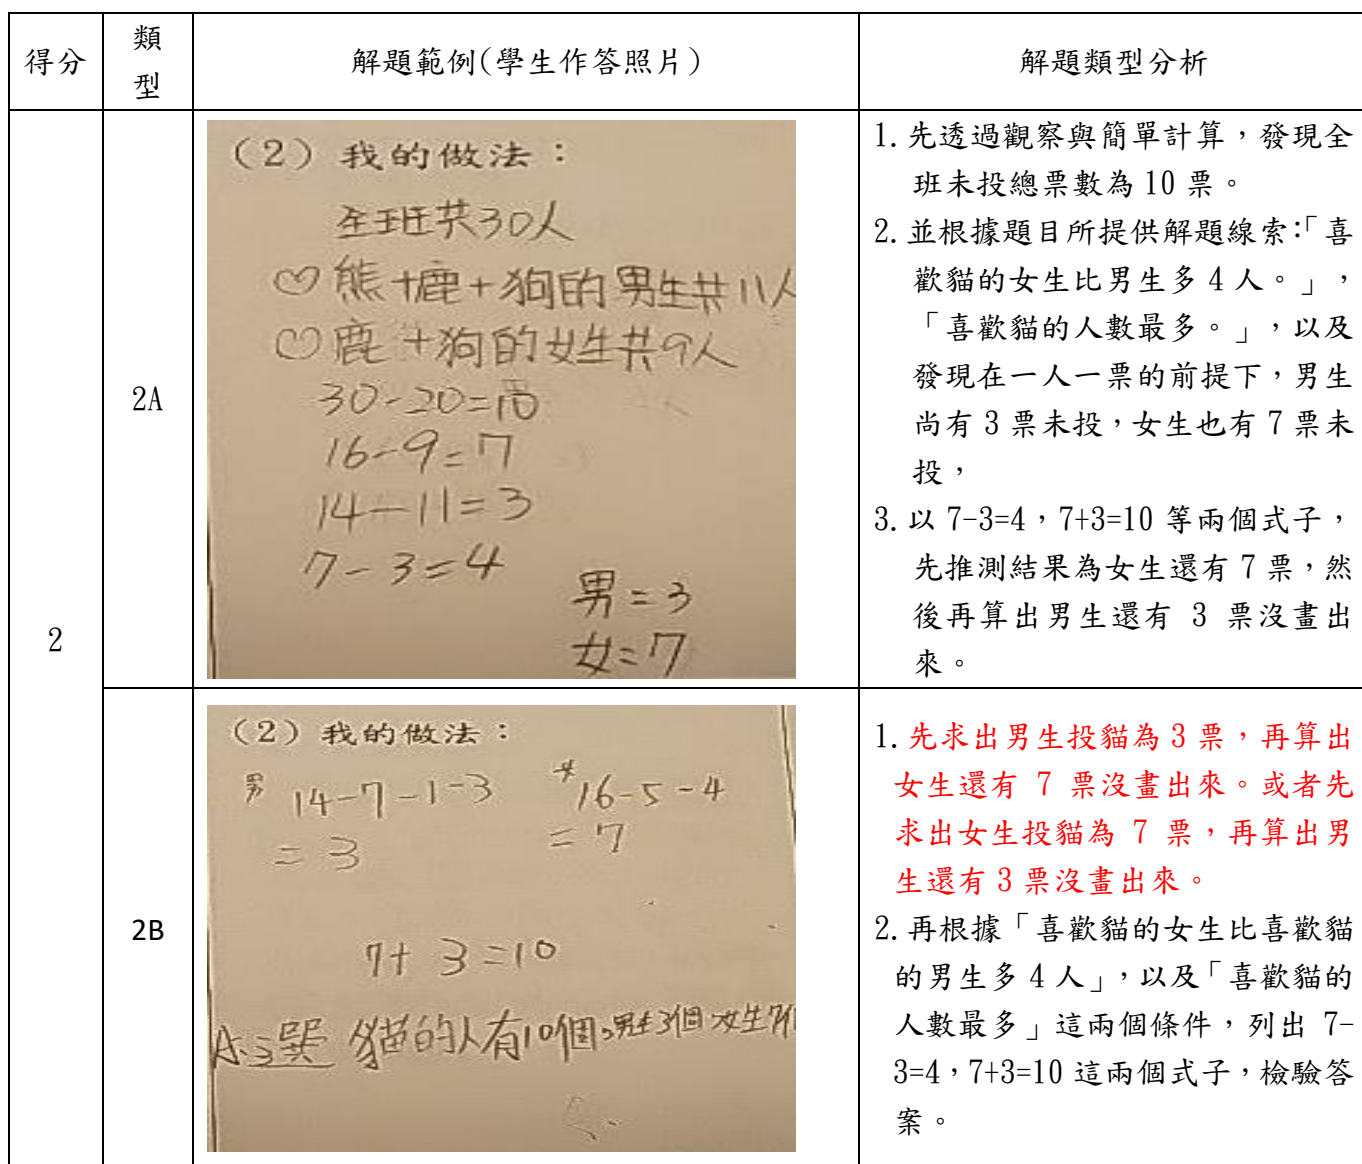 得分
類
型
解題範例(學生作答照片)
解題類型分析
2
2A
(2)我的做法：
全班共30人
♡熊+鹿+狗的男生共11人
♡鹿+狗的女生共9人
30-20=10
16-9=7
14-11=3
7-3=4
男=3
女=7
1.先透過觀察與簡單計算，發現全
班未投總票數為10票。
2.並根據題目所提供解題線索：「喜
歡貓的女生比男生多4人。」，
「喜歡貓的人數最多。」，以及
發現在一人一票的前提下，男生
尚有3票未投，女生也有7票未
投，
3.以7-3=4，7+3=10等兩個式子，
先推測結果為女生還有7票，然
後再算出男生還有3票沒畫出
來。
2B
(2)我的做法：
男 14-7-1-3
=3
女 16-5-4
=7
7+3=10
A:選貓的人有10個,男生3個女生7個
1.先求出男生投貓為3票，再算出
女生還有7票沒畫出來。或者先
求出女生投貓為7票，再算出男
生還有3票沒畫出來。
2.再根據「喜歡貓的女生比喜歡貓
的男生多4人」，以及「喜歡貓的
人數最多」這兩個條件，列出7-
3=4，7+3=10這兩個式子，檢驗答
案。